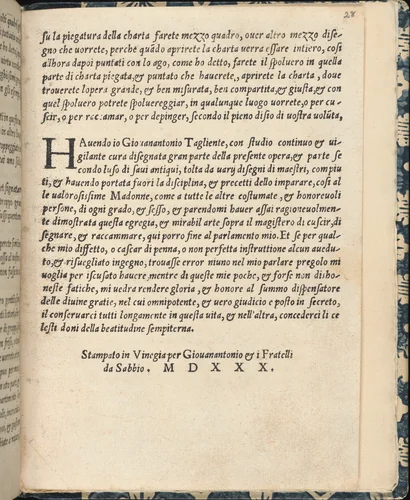 28
su la piegatura della charta farete mezzo quadro, ouer altro mezzo dise-
gno che uorrete, perche quãdo aprirete la charta uerra essere intiero, cosi
alhora dapoi puntati con lo ago, come ho detto, farete il spoluero in quella
parte di charta piegata, & puntato che hauerete, aprirete la charta, doue
trouerete lopera grande, & ben misurata, ben compartita, & giusta, & con
quel spoluero potrete spoluereggiar, in qualunque luogo uorrete, o per cu-
scir, o per recamar, o per depinger, secondo il pieno disio di uostra volũta,
HAuendo io Giouanantonio Tagliente, con studio continuo & ui-
gilante cura disegnata gran parte della presente opera, & parte se
condo luso di saui antiqui, tolta da uarij disegni di maestri, compiu
ti, & hauendo portata fuori la disciplina, & precetti dello imparare, cosi al
le ualorosissime Madonne, come a tutte le altre costumate, & honoreuoli
persone, di ogni grado, & sesso, & parendomi hauer assai ragioneuolmen-
te dimostrata questa egregia, & mirabil arte sopra il magistero di cuscir, di
segnare, & raccammare, qui porro fine al parlamento mio. Et se per qual-
che mio diffetto, o cascar di penna, o non perfetta instruttione alcun auedu-
to, & risuegliato ingegno, trouasse error niuno nel mio parlare pregolo mi
uoglia per iscusato hauere, mentre di queste mie poche, & forse non disho-
neste fatiche, mi uedra rendere gloria, & honore al summo dispensatore
delle diuine gratie, nel cui omnipotente, & uero giudicio e posto in secreto,
il conseruarci tutti longamente in questa uita, & nell'altra, concederci li ce
lesti doni della beatitudine sempiterna.
Stampato in Vinegia per Giouanantonio & i Fratelli
da Sabbio. M D X X X.